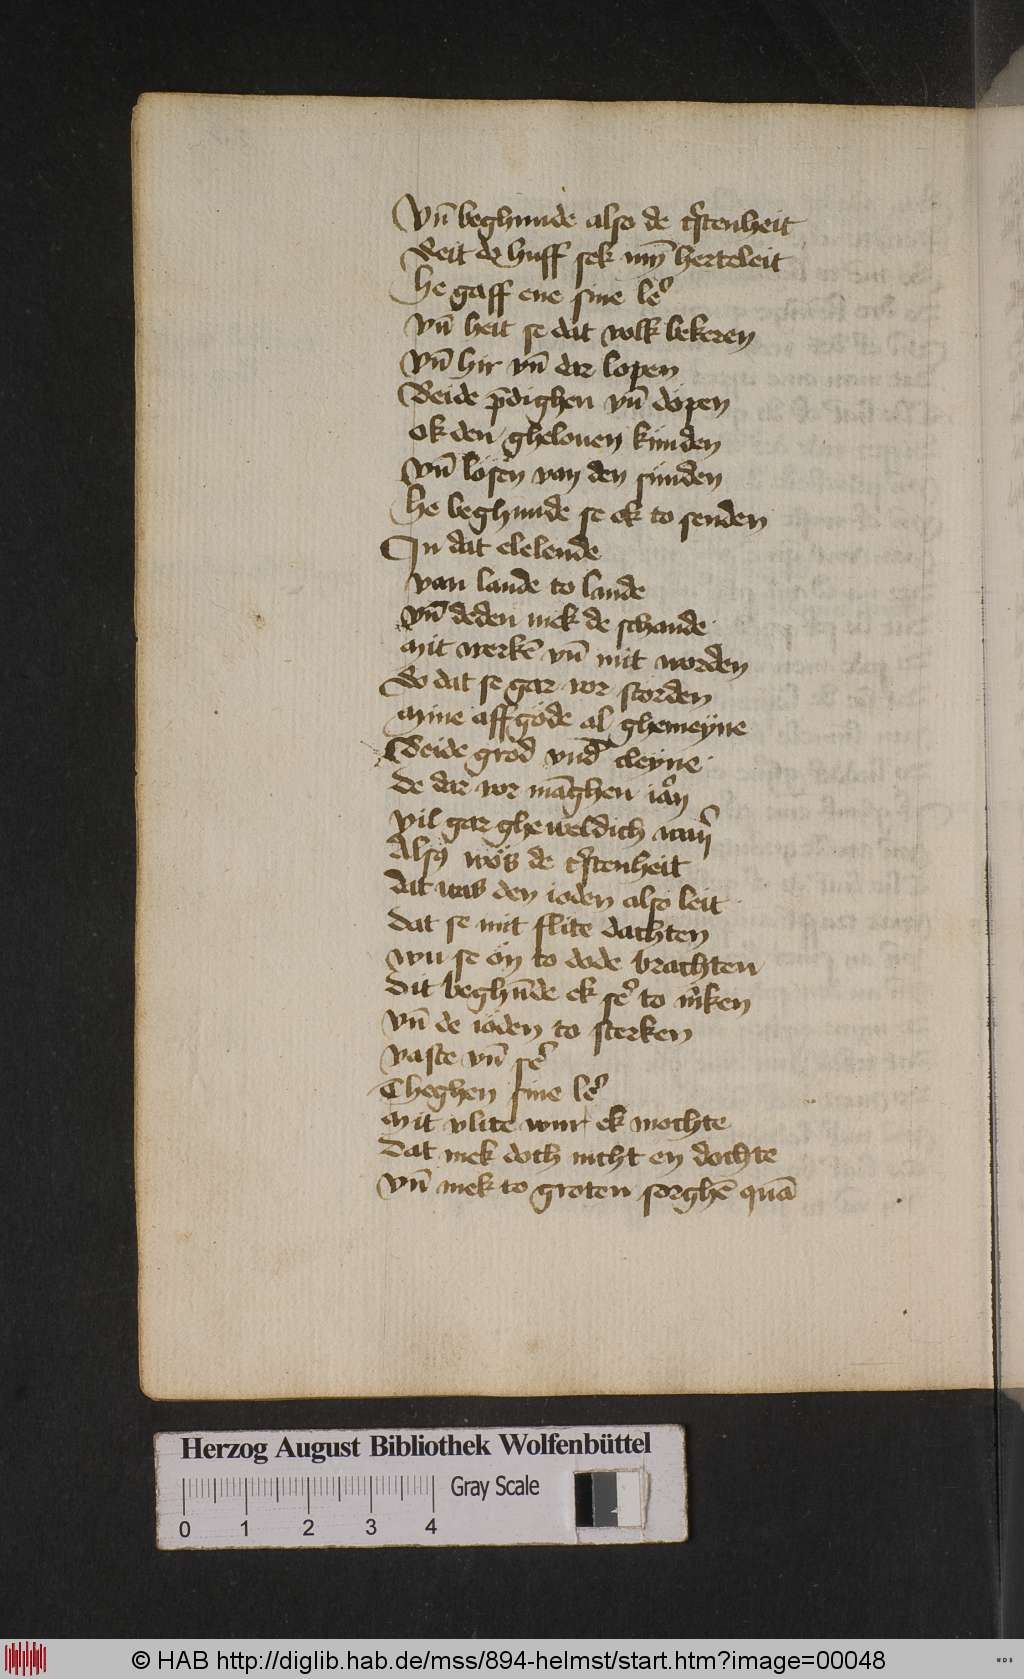 Vn̄ beghunde also de cr̄stenheit
Reit dar huff sek mȳ herteleit
he gaff ene sine ler̉
vn̄ heit se dat volk bekeren
vn̄ hir vn̄ dar lopen
Beide p̄dighen vn̄ döpen
ok den ghelouen künden
vn̄ lösen van den sünden
he beghunde se ok to senden
In dat elelende
van lande to lande
vn̄ deden mek de schande
mit werkē vn̄ mit worden
So dat se gar vor storden
mine affgöde al ghemeÿne
Beide grod vnd cleÿne
de dar vor māghen iar̉n
vil gar gheweldich warn̉
Also wös de cr̄stenheit
dat was den ioden also leit
dat se mit flite dachten
wu se ön to dode brachten
dit beghūde ek ser̉ to m̉ken
vn̄ de iöden to sterken
vaste vn̄ ser̉
Theghen sine ler̉
mit vlite wur ek mochte
dat mek doch nicht en dochte
vn̄ mek to groten sorghē quā
Herzog August Bibliothek Wolfenbüttel
Gray Scale
0 1 2 3 4
© HAB http://diglib.hab.de/mss/894-helmst/start.htm?image=00048